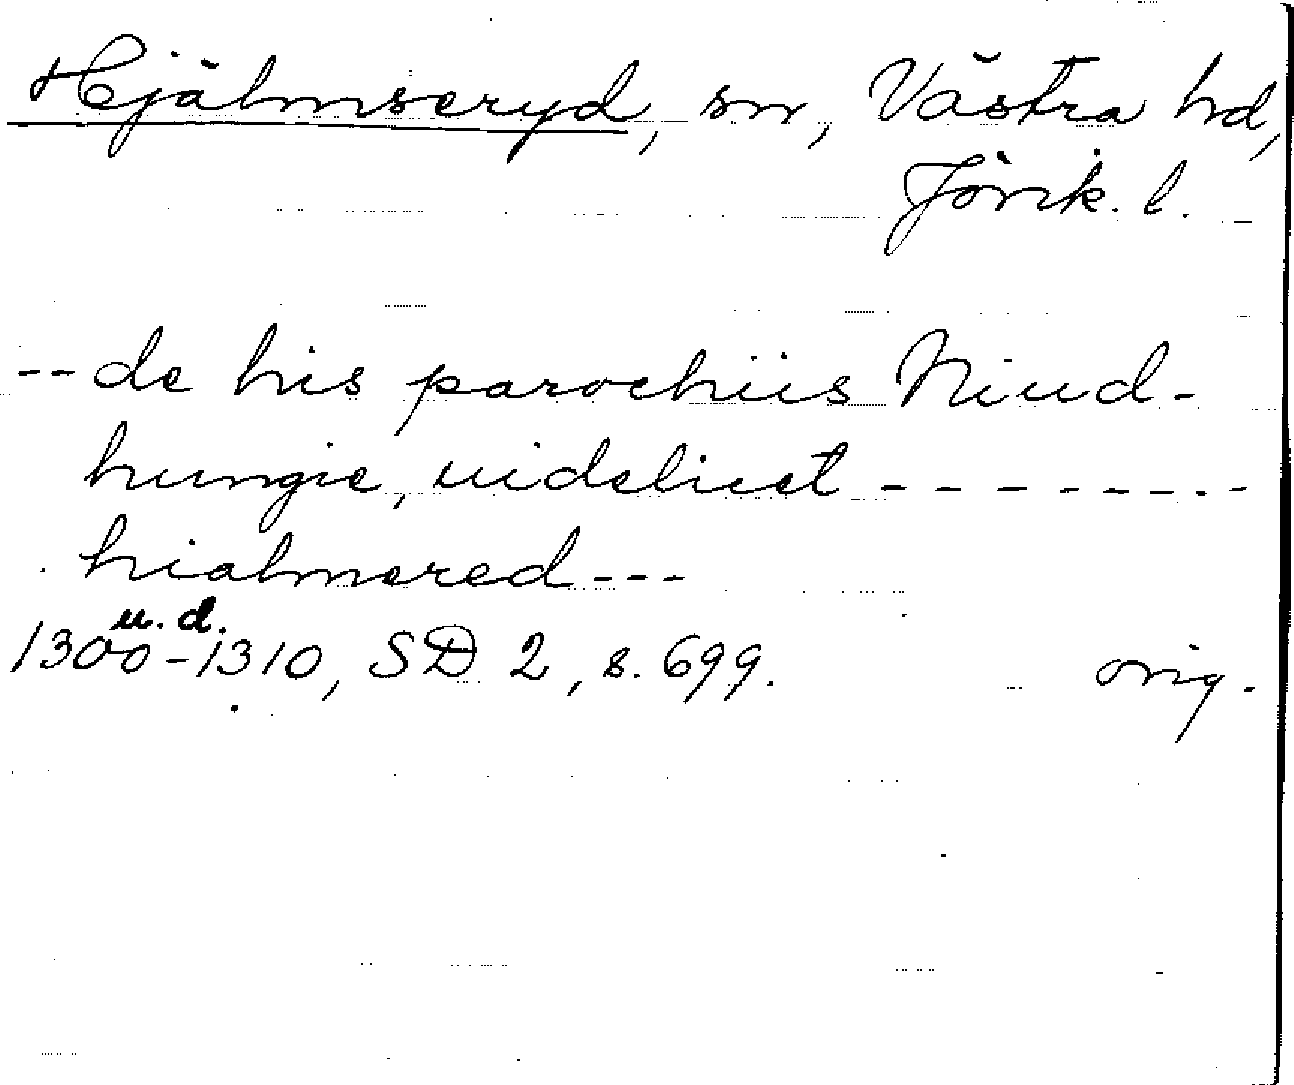 Hjälmseryd, sn, Västra hd,
Jönk. l.
-- de his parochiis Niud-
hungie, uidelicet - - - - - - - -
hialmsered ---
u. d.
1300-1310, SD 2, s. 699. orig.